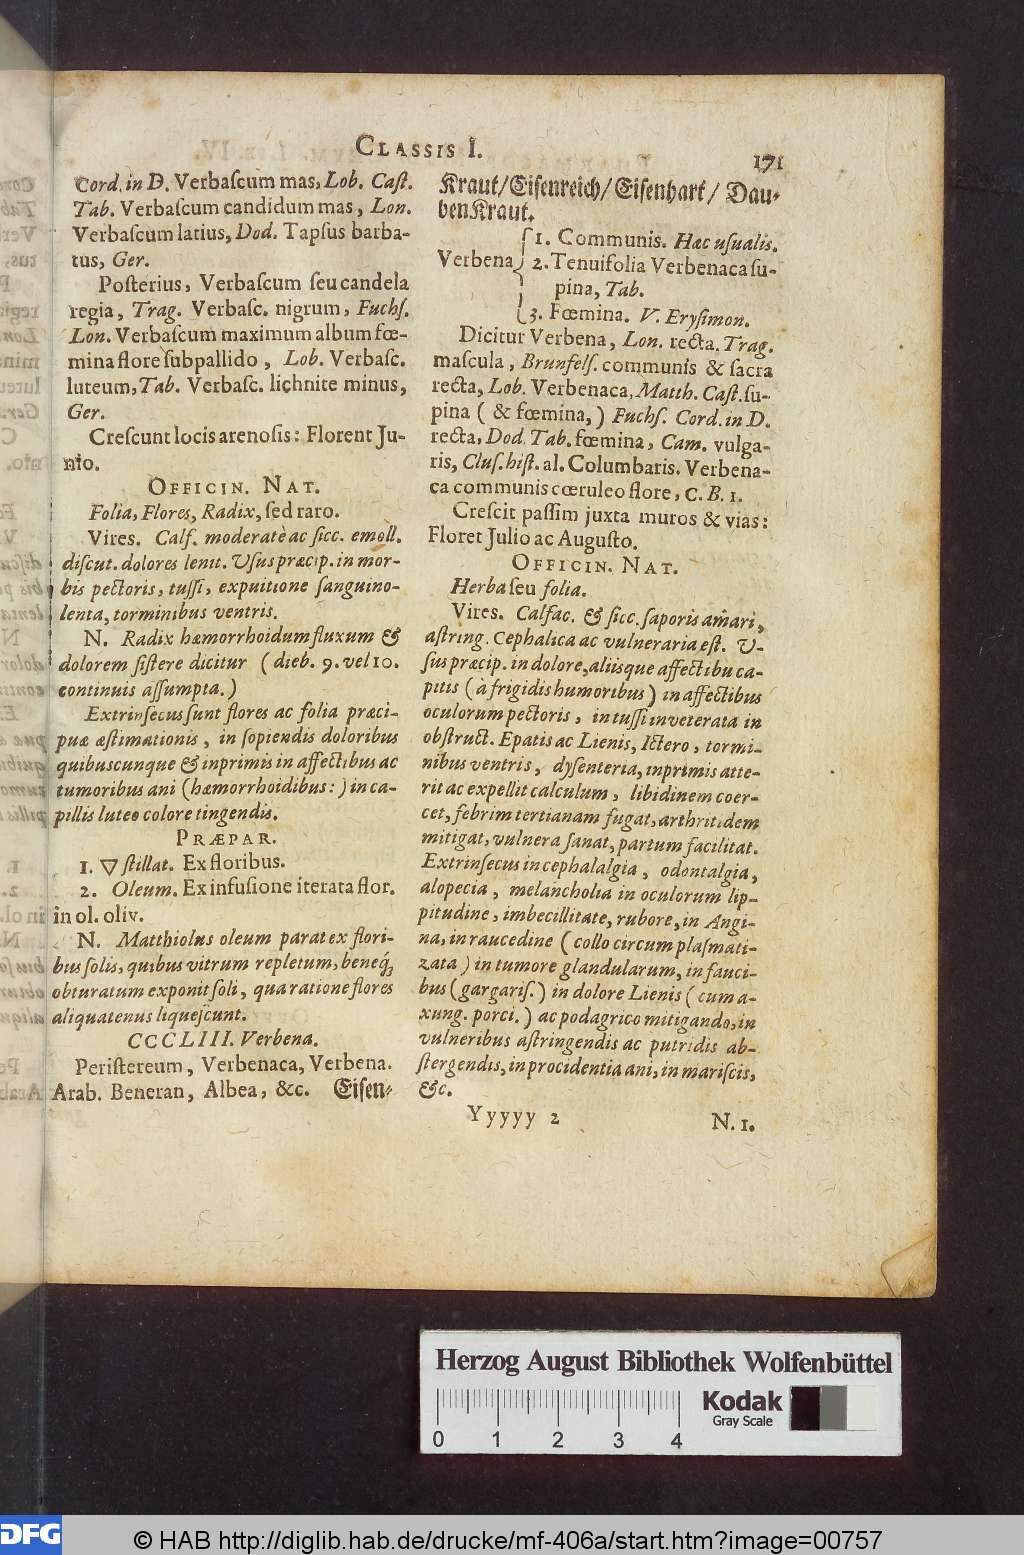 CLASSIS I.
171
Cord. in D. Verbaſcum mas, Lob. Caſt.
Tab. Verbaſcum candidum mas, Lon.
Verbaſcum latius, Dod. Tapſus barba-
tus, Ger.
Poſterius, Verbaſcum ſeu candela
regia, Trag. Verbaſc. nigrum, Fuchſ.
Lon. Verbaſcum maximum album fœ-
mina flore ſubpallido, Lob. Verbaſc.
luteum, Tab. Verbaſc. lichnite minus,
Ger.
Creſcunt locis arenoſis: Florent Ju-
nio.
OFFICIN. NAT.
Folia, Flores, Radix, ſed raro.
Vires. Calf. moderatè ac ſicc. emoll.
diſcut. dolores lenit. Uſus præcip. in mor-
bis pectoris, tuſſi, expuitione ſanguino-
lenta, torminibus ventris.
N. Radix hæmorrhoidum fluxum &
dolorem ſiſtere dicitur (dieb. 9. vel 10.
continuis aſſumpta.)
Extrinſecus ſunt flores ac folia præci-
puæ æſtimationis, in ſopiendis doloribus
quibuscunque & inprimis in affectibus ac
tumoribus ani (hæmorrhoidibus:) in ca-
pillis luteo colore tingendis.
PRÆPAR.
1. ▽ ſtillat. Ex floribus.
2. Oleum. Ex infuſione iterata flor.
in ol. oliv.
N. Matthiolus oleum parat ex flori-
bus ſolis, quibus vitrum repletum, beneq́;
obturatum exponit ſoli, qua ratione flores
aliquatenus liqueſcunt.
CCCLIII. Verbena.
Periſtereum, Verbenaca, Verbena.
Arab. Beneran, Albea, &c. Eiſen-
Kraut/Eiſenreich/Eiſenhart/Dau-
benKraut.
1. Communis. Hæc uſualis.
Verbena 2. Tenuifolia Verbenaca ſu-
pina, Tab.
3. Fœmina. V. Eryſimon.
Dicitur Verbena, Lon. recta. Trag.
maſcula, Brunfelſ. communis & ſacra
recta, Lob. Verbenaca, Matth. Caſt. ſu-
pina (& fœmina,) Fuchſ. Cord. in D.
recta, Dod. Tab. fœmina, Cam. vulga-
ris, Cluſ. hiſt. al. Columbaris. Verbena-
ca communis cœruleo flore, C. B. 1.
Creſcit paſſim juxta muros & vias:
Floret Julio ac Auguſto.
OFFICIN. NAT.
Herba ſeu folia.
Vires. Calfac. & ſicc. ſaporis amari,
aſtring. Cephalica ac vulneraria eſt. U-
ſus præcip. in dolore, aliisque affectibu ca-
pitis (à frigidis humoribus) in affectibus
oculorum pectoris, in tuſſi inveterata in
obſtruct. Epatis ac Lienis, Ictero, tormi-
nibus ventris, dyſenteria, inprimis atte-
rit ac expellit calculum, libidinem coer-
cet, febrim tertianam fugat, arthritidem
mitigat, vulnera ſanat, partum facilitat.
Extrinſecus in cephalalgia, odontalgia,
alopecia, melancholia in oculorum lip-
pitudine, imbecillitate, rubore, in Angi-
na, in raucedine (collo circumplaſmati-
zata) in tumore glandularum, in fauci-
bus (gargariſ.) in dolore Lienis (cum a-
xung. porci.) ac podagrico mitigando, in
vulneribus aſtringendis ac putridis ab-
ſtergendis, in procidentia ani, in mariſcis,
&c.
Yyyyy 2
N. 1.
Herzog August Bibliothek Wolfenbüttel
Kodak
Gray Scale
0 1 2 3 4
DFG
© HAB http://diglib.hab.de/drucke/mf-406a/start.htm?image=00757